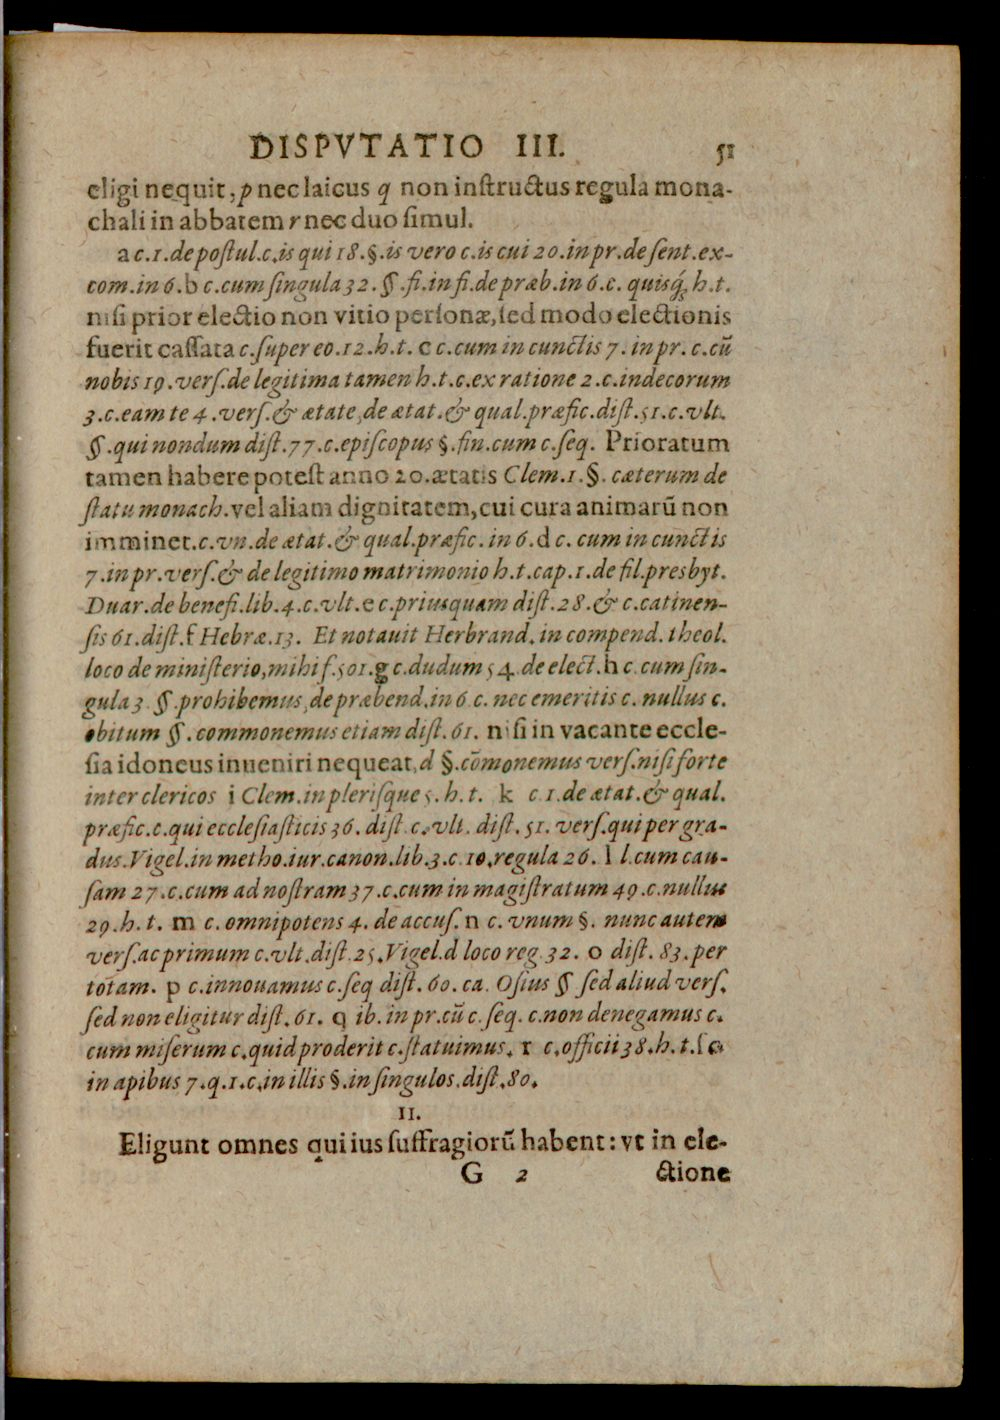 DISPVTATIO III. 51
eligi nequit, p nec laicus q non instructus regula mona-
chali in abbatem r nec duo simul.
a c.1. de postul. c. is qui 18. §. is vero c. is cui 20. in pr. de sent. ex-
com. in 6. b c. cum singula 32. §. fi. in fi. de præb. in 6. c. quisq́; h. t.
nisi prior electio non vitio personæ, sed modo electionis
fuerit cassata c. super eo. 12. h. t. c c. cum in cunctis 7. in pr. c. cū
nobis 19. vers. de legitima tamen h. t. c. ex ratione 2. c. indecorum
3. c. eam te 4. vers. & ætate, de ætat. & qual. præfic. dist. 51. c. vlt.
§. qui nondum dist. 77. c. episcopus §. fin. cum c. seq. Prioratum
tamen habere potest anno 20. ætatis Clem. 1. §. cæterum de
statu monach. vel aliam dignitatem, cui cura animarū non
imminet. c. vn. de ætat. & qual. præfic. in 6. d c. cum in cunctis
7. in pr. vers. & de legitimo matrimonio h. t. cap. 1. de fil. presbyt.
Duar. de benefi. lib. 4. c. vlt. e c. priusquam dist. 28. & c. catinen-
sis 61. dist. f Hebræ. 13. Et notauit Herbrand. in compend. theol.
loco de ministerio, mihi f. 501. g c. dudum 54. de elect. h c. cum sin-
gula 3 §. prohibemus, de præbend. in 6 c. nec emeritis c. nullus c.
obitum §. commonemus etiam dist. 61. nisi in vacante eccle-
sia idoneus inueniri nequeat, d §. cōmonemus vers. nisi forte
inter clericos i Clem. in plerisque 5. h. t. k c. 1. de ætat. & qual.
præfic. c. qui ecclesiasticis 36. dist. c. vlt. dist. 51. vers. qui per gra-
dus. Vigel. in metho. iur. canon. lib. 3. c. 10. regula 26. l l. cum cau-
sam 27. c. cum ad nostram 37. c. cum in magistratum 49. c. nullus
29. h. t. m c. omnipotens 4. de accus. n c. vnum §. nunc autem
vers. ac primum c. vlt. dist. 25. Vigel. d loco reg. 32. o dist. 83. per
totam. p c. innouamus c. seq dist. 60. ca. Osius § sed aliud vers.
sed non eligitur dist. 61. q ib. in pr. cū c. seq. c. non denegamus c.
cum miserum c. quid proderit c. statuimus. r c. officii 38. h. t. s c.
in apibus 7. q. 1. c. in illis §. in singulos. dist. 80.
II.
Eligunt omnes qui ius suffragiorū habent: vt in ele-
G 2 ctione